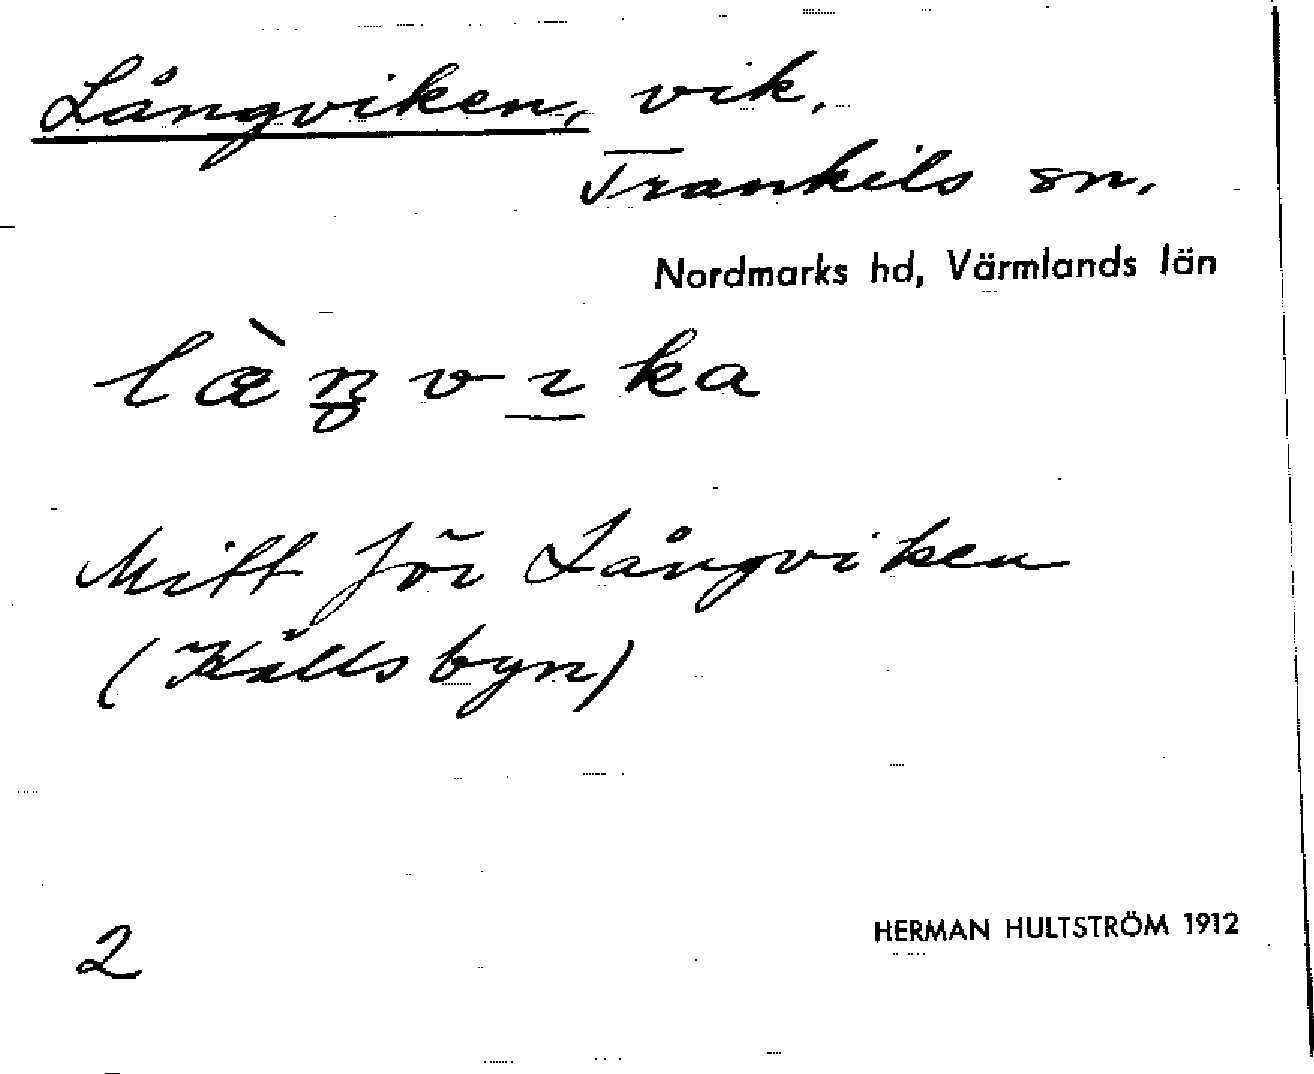 Långviken, vik.
Trankils sn.
Nordmarks hd, Värmlands län
Mitt för Långviken
(Källsbyn)
2
HERMAN HULTSTRÖM 1912